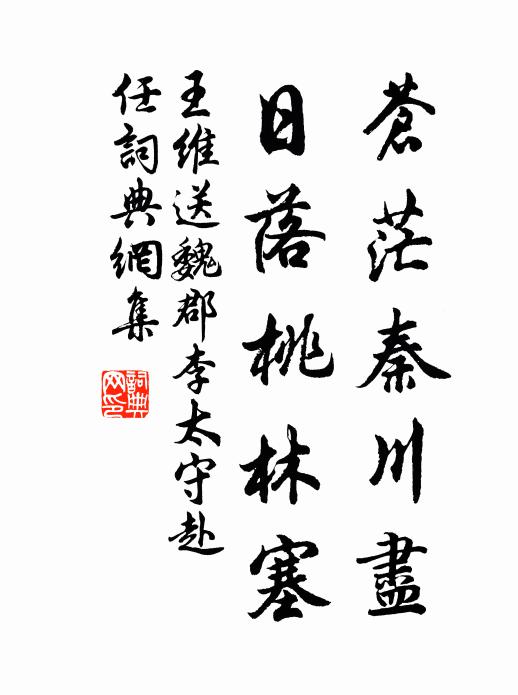 蒼茫秦川盡
日落桃林塞
王維送魏郡李太守赴
任詞典網集
詞典
网印